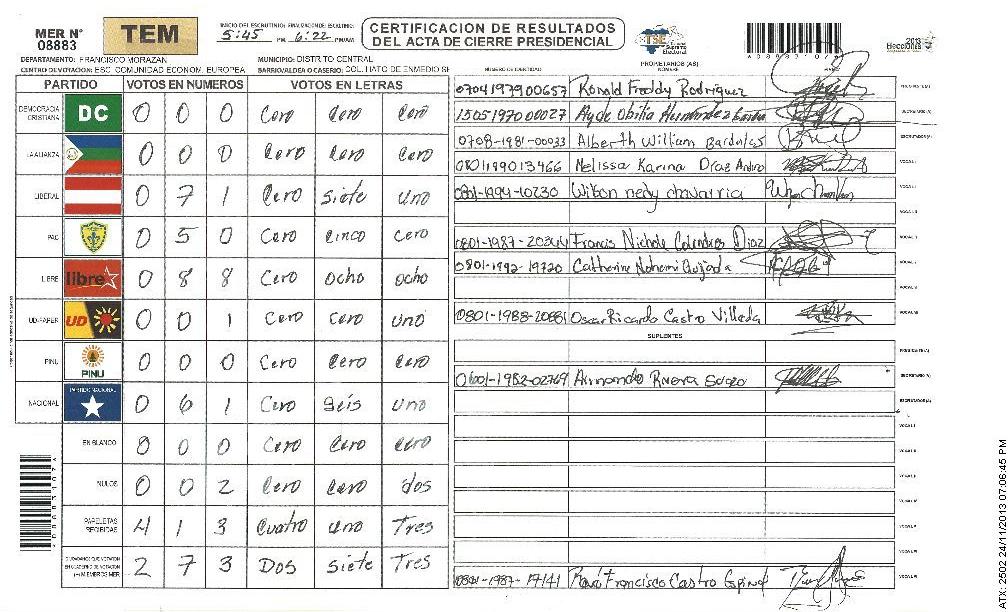 MER N° 08883
TEM
INICIO DEL ESCRUTINIO: 5:45 PM FINALIZACION DEL ESCRUTINIO: 6:22 PM/AM
CERTIFICACION DE RESULTADOS DEL ACTA DE CIERRE PRESIDENCIAL
TSE Tribunal Supremo Electoral
2013 Elecciones
DEPARTAMENTO: FRANCISCO MORAZAN MUNICIPIO: DISTRITO CENTRAL
CENTRO DE VOTACION: ESC. COMUNIDAD ECONOM. EUROPEA BARRIO/ALDEA O CASERIO: COL. HATO DE ENMEDIO SE
PARTIDO VOTOS EN NUMEROS VOTOS EN LETRAS
DEMOCRACIA CRISTIANA DC 0 0 0 Cero Cero Cero
LA ALIANZA 0 0 0 Cero Cero Cero
LIBERAL 0 7 1 Cero Siete uno
PAC 0 5 0 Cero Cinco Cero
LIBRE libre 0 8 8 Cero ocho ocho
UD-FAPER UD 0 0 1 Cero Cero Uno
PINU PINU 0 0 0 Cero Cero Cero
NACIONAL PARTIDO NACIONAL 0 6 1 Cero Seis Uno
EN BLANCO 0 0 Cero Cero Cero
NULOS 0 0 2 Cero Cero dos
PAPELETAS RECIBIDAS 4 1 3 Cuatro uno Tres
2 7 3 Dos Siete Tres
NUMERO DE IDENTIDAD PROPIETARIOS (AS) NOMBRE
0704197900657 Ronald Freddy Rodriguez
1505197000027 Ayde Obilia Hernandez
0708-1981-00033 Alberth William Bardales
0801199013466 Melissa Karina Diaz
Wilson nedy chavarria
0801-1987-20344 Francis Nichole Diaz
0801-1992-19720 Catherine Nohemi Quijada
0801-1988-20881 Oscar Ricardo Castro Villeda
SUPLENTES
PRESIDENTE (A)
0601-1982-02769 Armando Rivera SECRETARIO (A)
-1987-17141 Francisco Castro
ATX: 2502 24/11/2013 07:06:45 PM